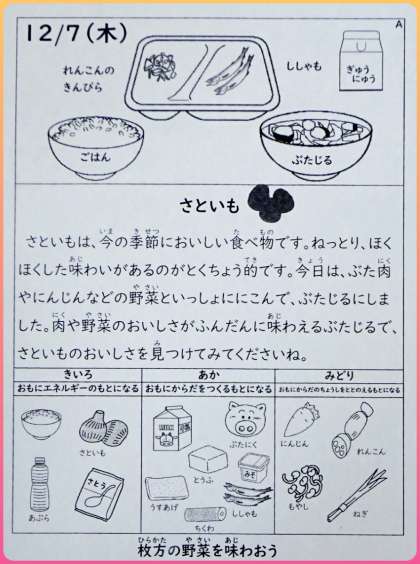 12/7(木)
A
れんこんの
きんぴら
ししゃも
ぎゅう
にゅう
ごはん
ぶたじる
さといも
さといもは、今の季節においしい食べ物です。ねっとり、ほく
ほくした味わいがあるのがとくちょう的です。今日は、ぶた肉
やにんじんなどの野菜といっしょににこんで、ぶたじるにしま
した。肉や野菜のおいしさがふんだんに味わえるぶたじるで、
さといものおいしさを見つけてみてくださいね。
きいろ
おもにエネルギーのもとになる
さといも
あぶら
さとう
あか
おもにからだをつくるもとになる
ぶたにく
とうふ
みそ
うすあげ
ししゃも
ちくわ
みどり
おもにからだのちょうしをととのえるもとになる
にんじん
れんこん
もやし
ねぎ
枚方の野菜を味わおう